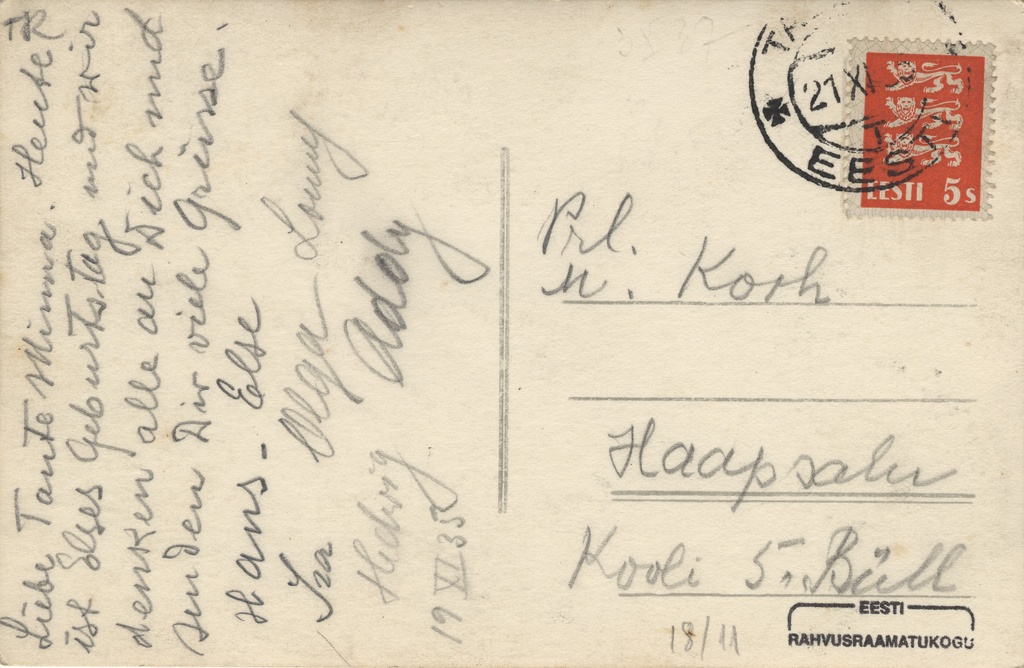 Liebe Tante Minna. Heute
ist Elses Geburtstag und wir
denken alle an Dich und
senden Dir viele Grüsse.
Hans - Else
Isa Olga Lonny
Hedwig Addy
19 XI 35
21 XI
EESTI
EESTI 5s
Prl.
M. Koch
Haapsalu
Kooli 5. Büll
18/11
EESTI
RAHVUSRAAMATUKOGU